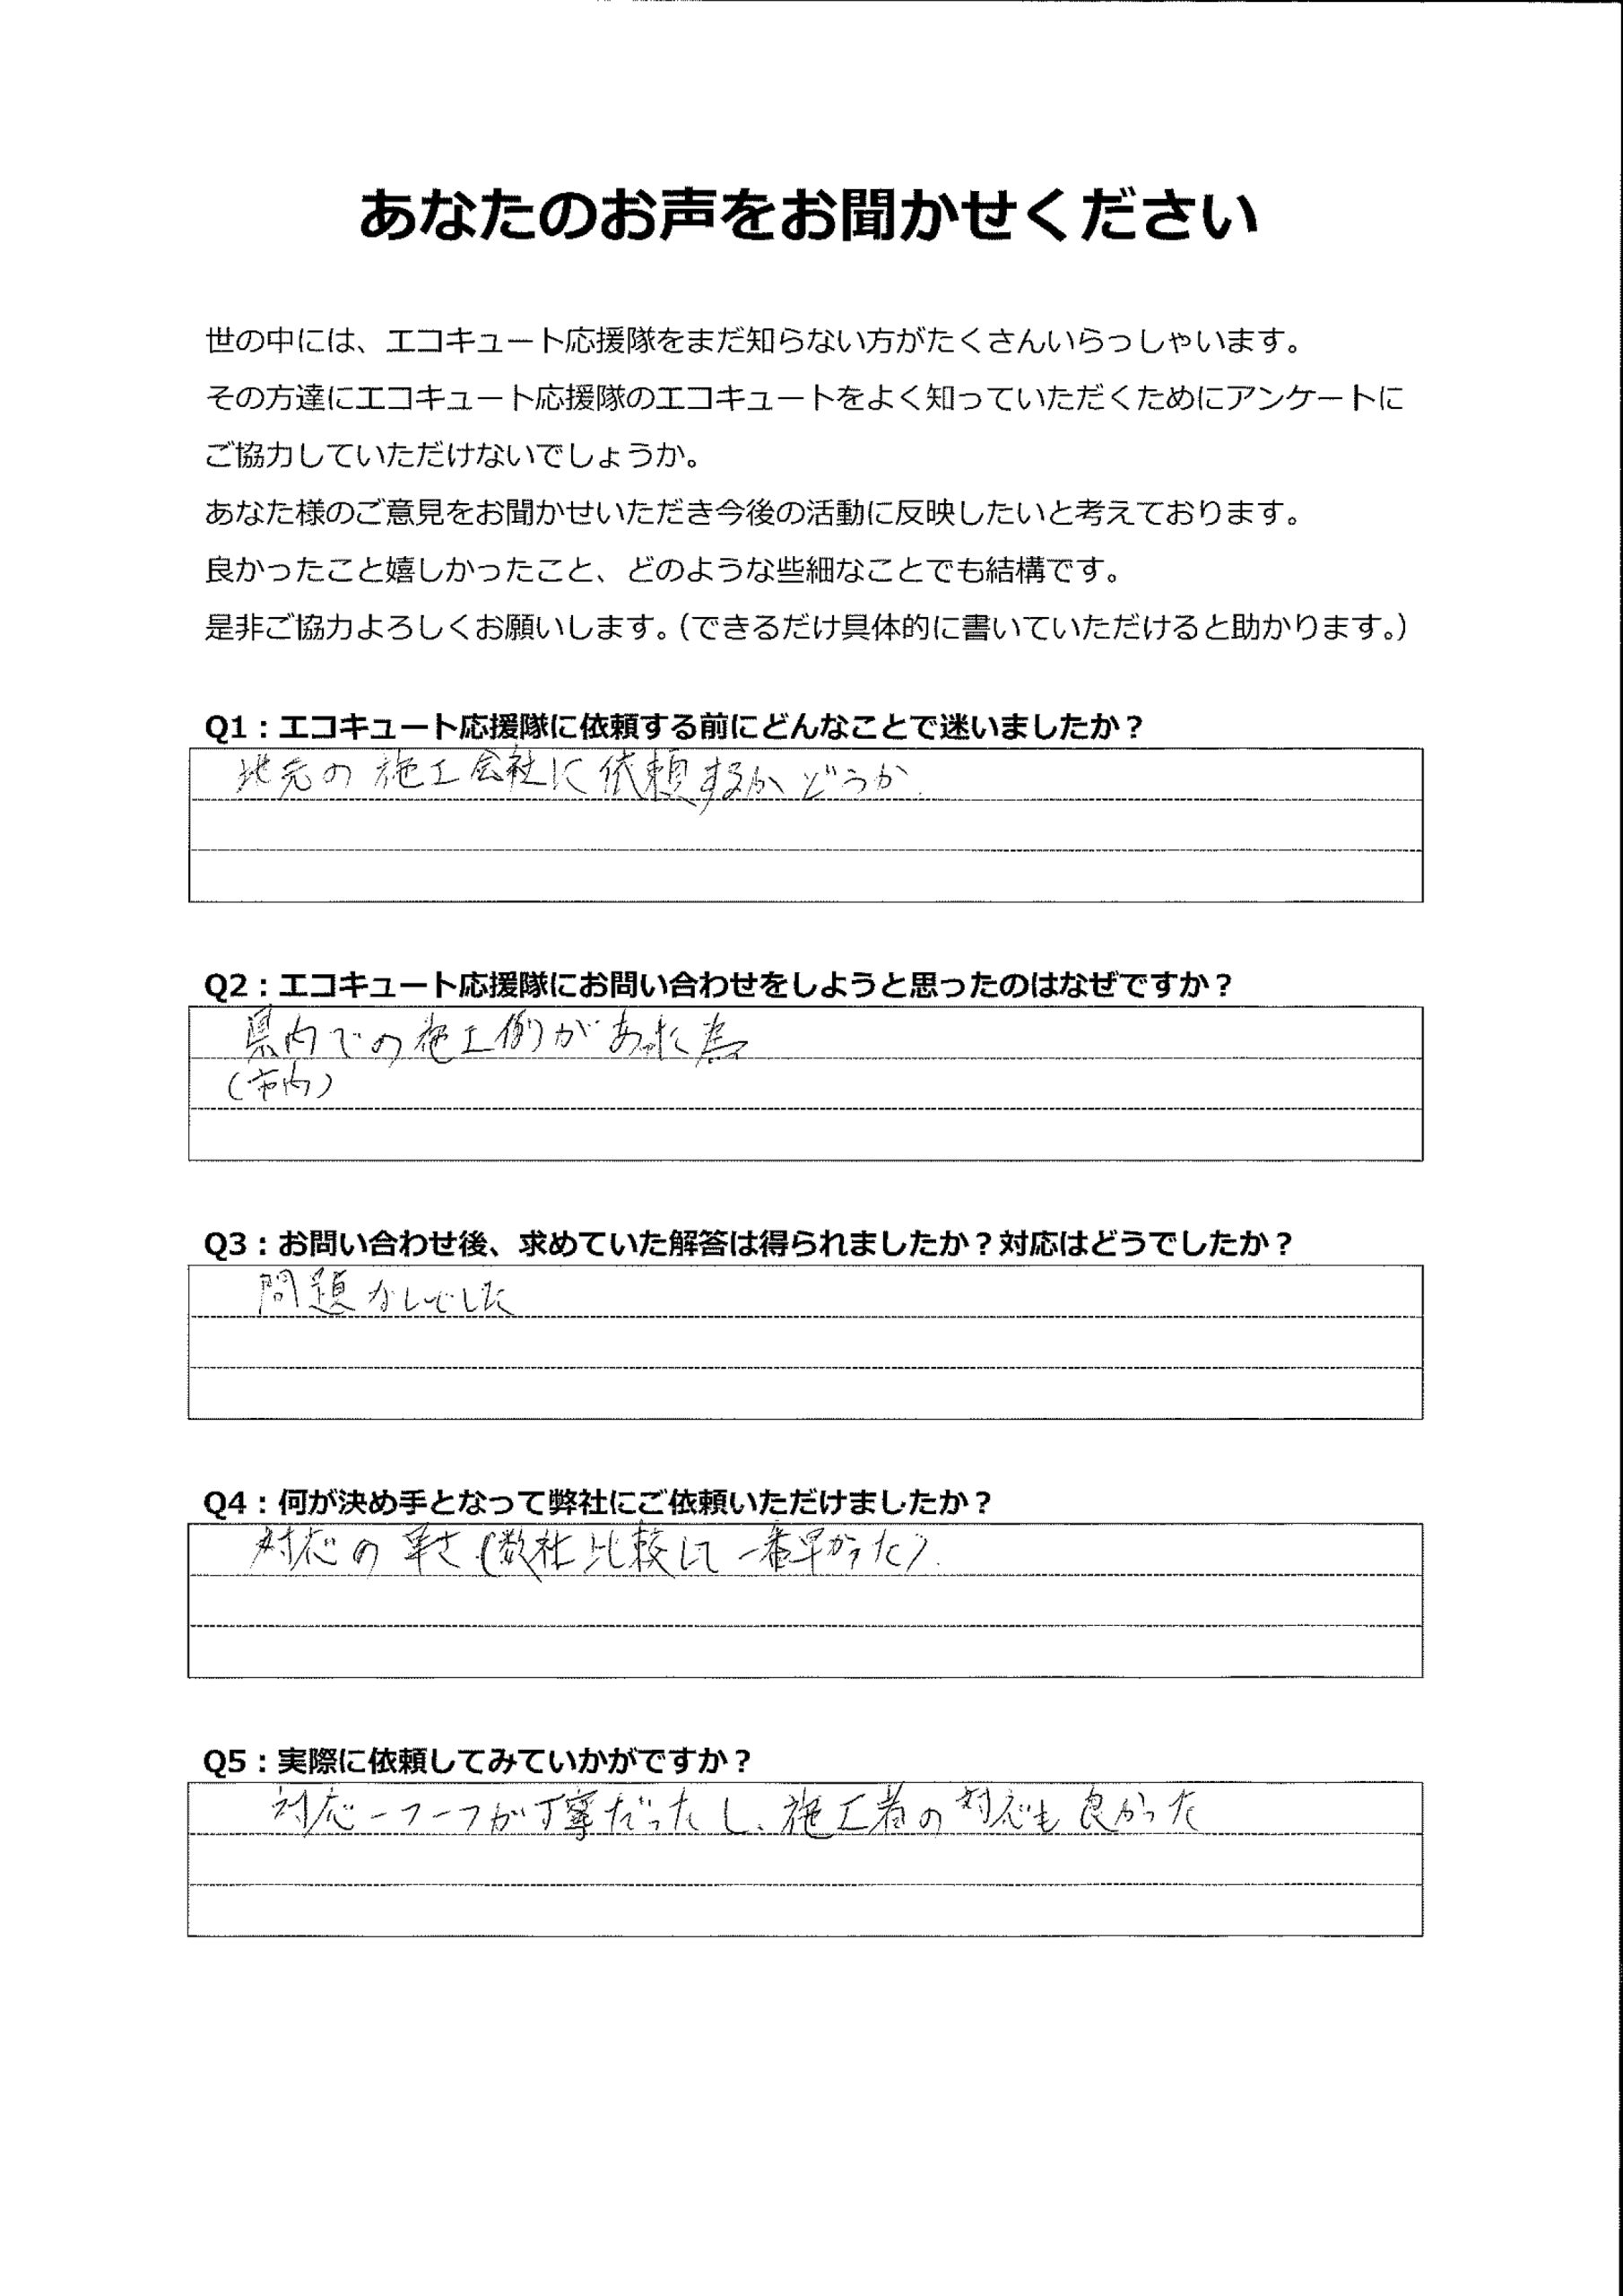 あなたのお声をお聞かせください
世の中には、エコキュート応援隊をまだ知らない方がたくさんいらっしゃいます。
その方達にエコキュート応援隊のエコキュートをよく知っていただくためにアンケートに
ご協力していただけないでしょうか。
あなた様のご意見をお聞かせいただき今後の活動に反映したいと考えております。
良かったこと嬉しかったこと、どのような些細なことでも結構です。
是非ご協力よろしくお願いします。（できるだけ具体的に書いていただけると助かります。）
Q1：エコキュート応援隊に依頼する前にどんなことで迷いましたか？
地元の施工会社に依頼するかどうか.
Q2：エコキュート応援隊にお問い合わせをしようと思ったのはなぜですか？
県内での施工例があった為
（市内）
Q3：お問い合わせ後、求めていた解答は得られましたか？対応はどうでしたか？
問題なしでした
Q4：何が決め手となって弊社にご依頼いただけましたか？
対応の早さ（数社比較して一番早かった）.
Q5：実際に依頼してみていかがですか？
対応一つ一つが丁寧だったし、施工者の対応も良かった